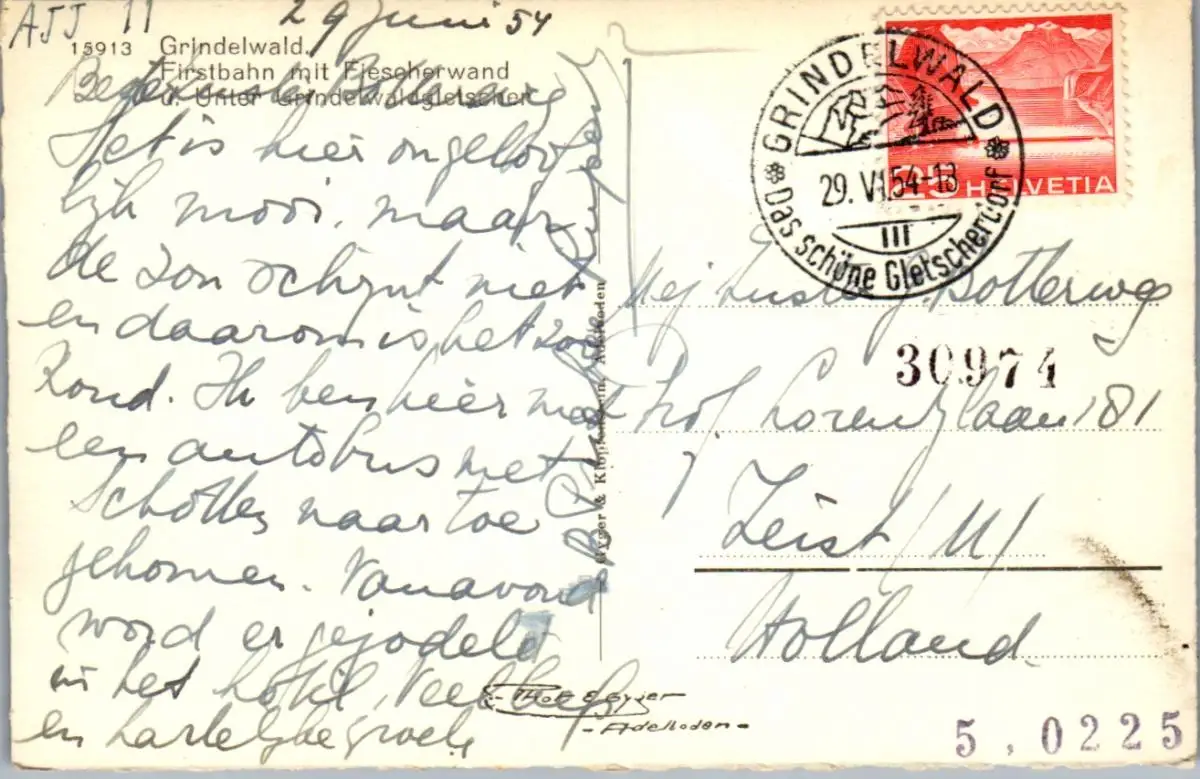 AJJ 11 29 Juni 54
15913 Grindelwald.
Firstbahn mit Fiescherwand
u. Unter Grindelwaldgletscher
Beste
Het is hier ongeloof
lijk mooi, maar
de zon schijnt niet
en daarom is het zoo
koud. Ik ben hier met
een autobus met
Schotten naar toe
gekomen. Vanavond
word er gejodeld
in het hotel, Veel liefs
en hartelijke groete
Gyger & Klopfenstein, Adelboden
Photo E. Gyger
- Adelboden -
GRINDELWALD
29. VI. 54-18
III
Das schöne Gletscherdorf
25 HELVETIA
Mej J. Botterweg
30974
Prof. Lorentzlaan 181
Zeist /U/
Holland
5,0225